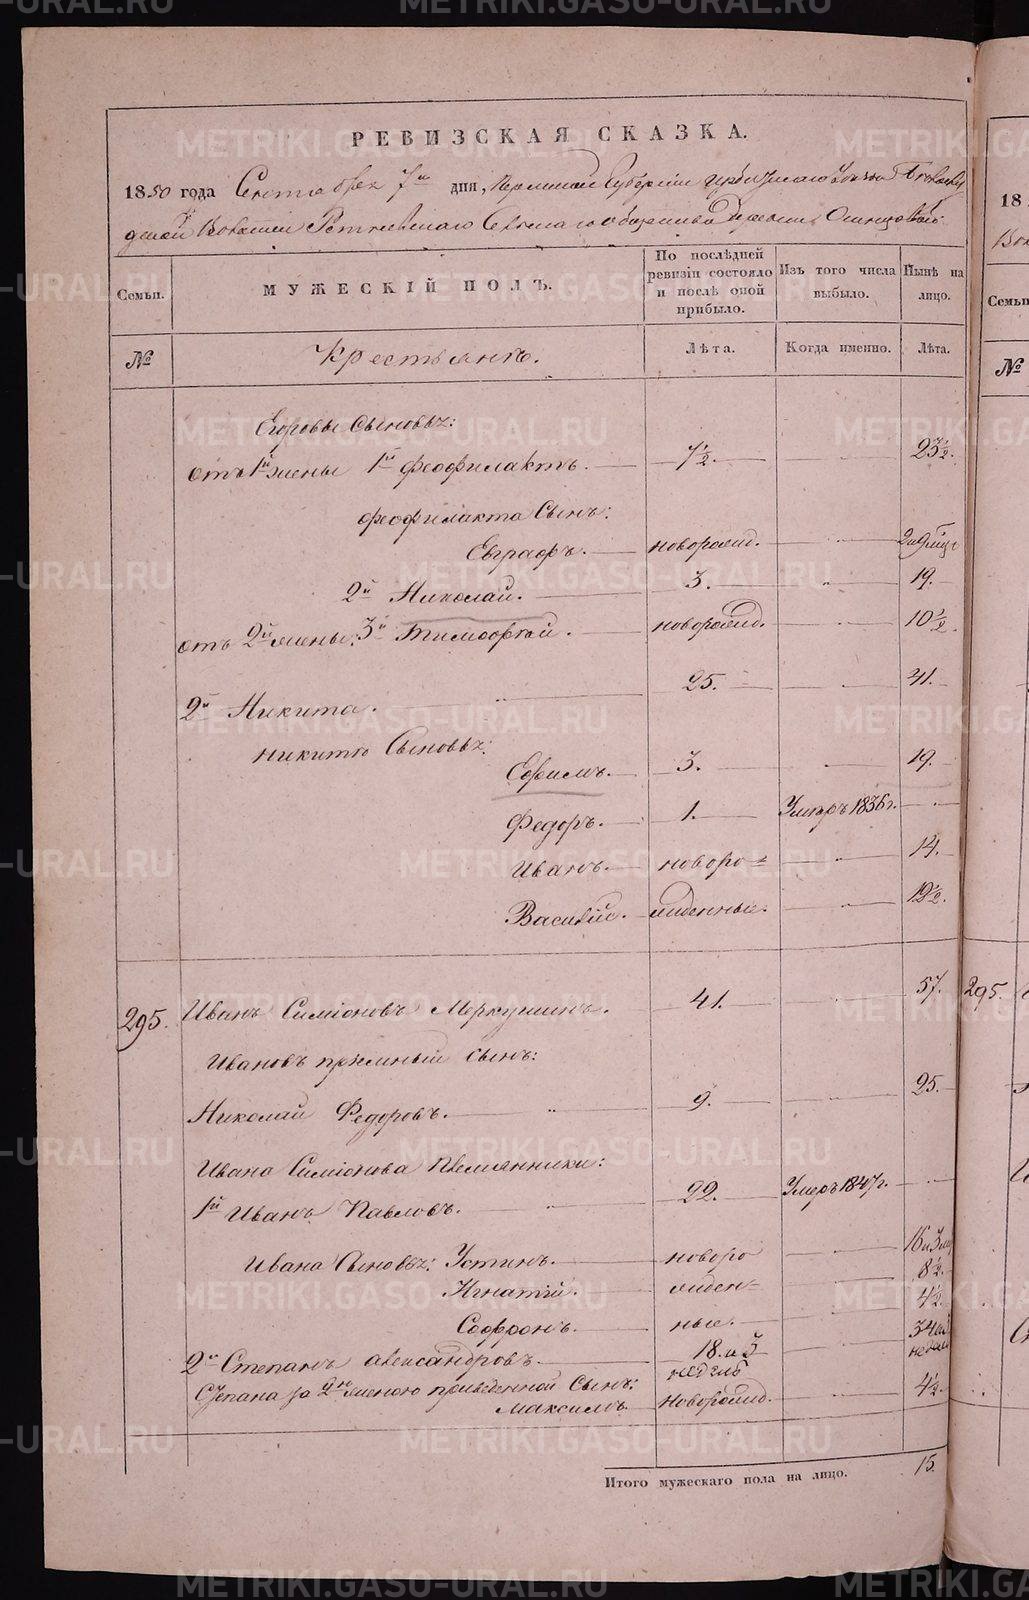 РЕВИЗСКАЯ СКАЗКА.
1850 года Сентября 7го дня, Пермской Губерніи Ирбитскаго Уѣзда
Волости Сельскаго общества Деревни
Семьи. МУЖЕСКІЙ ПОЛЪ. По послѣдней ревизіи состояло и послѣ оной прибыло. Изъ того числа выбыло. Нынѣ на лицо.
№ Крестьянъ. Лѣта. Когда именно. Лѣта.
Егоровы Сыновья:
отъ 1й жены 1й Феофилактъ. 7½. 23½.
Феофилакта Сынъ:
Евграфъ. новорожд.
2й Николай. 3. 19.
отъ 2й жены: 3й Тимофей. новорожд. 10½.
2й Никита. 25. 41.
Никиты Сыновья:
Ефимъ. 3. 19.
Федоръ. 1. Умеръ 1836 г.
Иванъ. новоро= 14.
Василій. жденные. 12½.
295. Иванъ Симіоновъ Меркушинъ. 41. 57. 295.
Ивановъ пріемный сынъ:
Николай Федоровъ. 9. 25.
Ивана Симіонова племянники:
1й Иванъ Павловъ. 22. Умеръ 1847 г.
Ивана Сыновья: Устинъ. новоро 16 и 3
Игнатій. жден= 8½.
Софронъ. ные. 4½.
2й Степанъ Александровъ. 18. и 3 недѣль 34
Степана за 2ю женою приведенной Сынъ:
Максимъ. новорожд. 4½.
Итого мужескаго пола на лицо. 15.
18
Семьи
№
METRIKI.GASO-URAL.RU